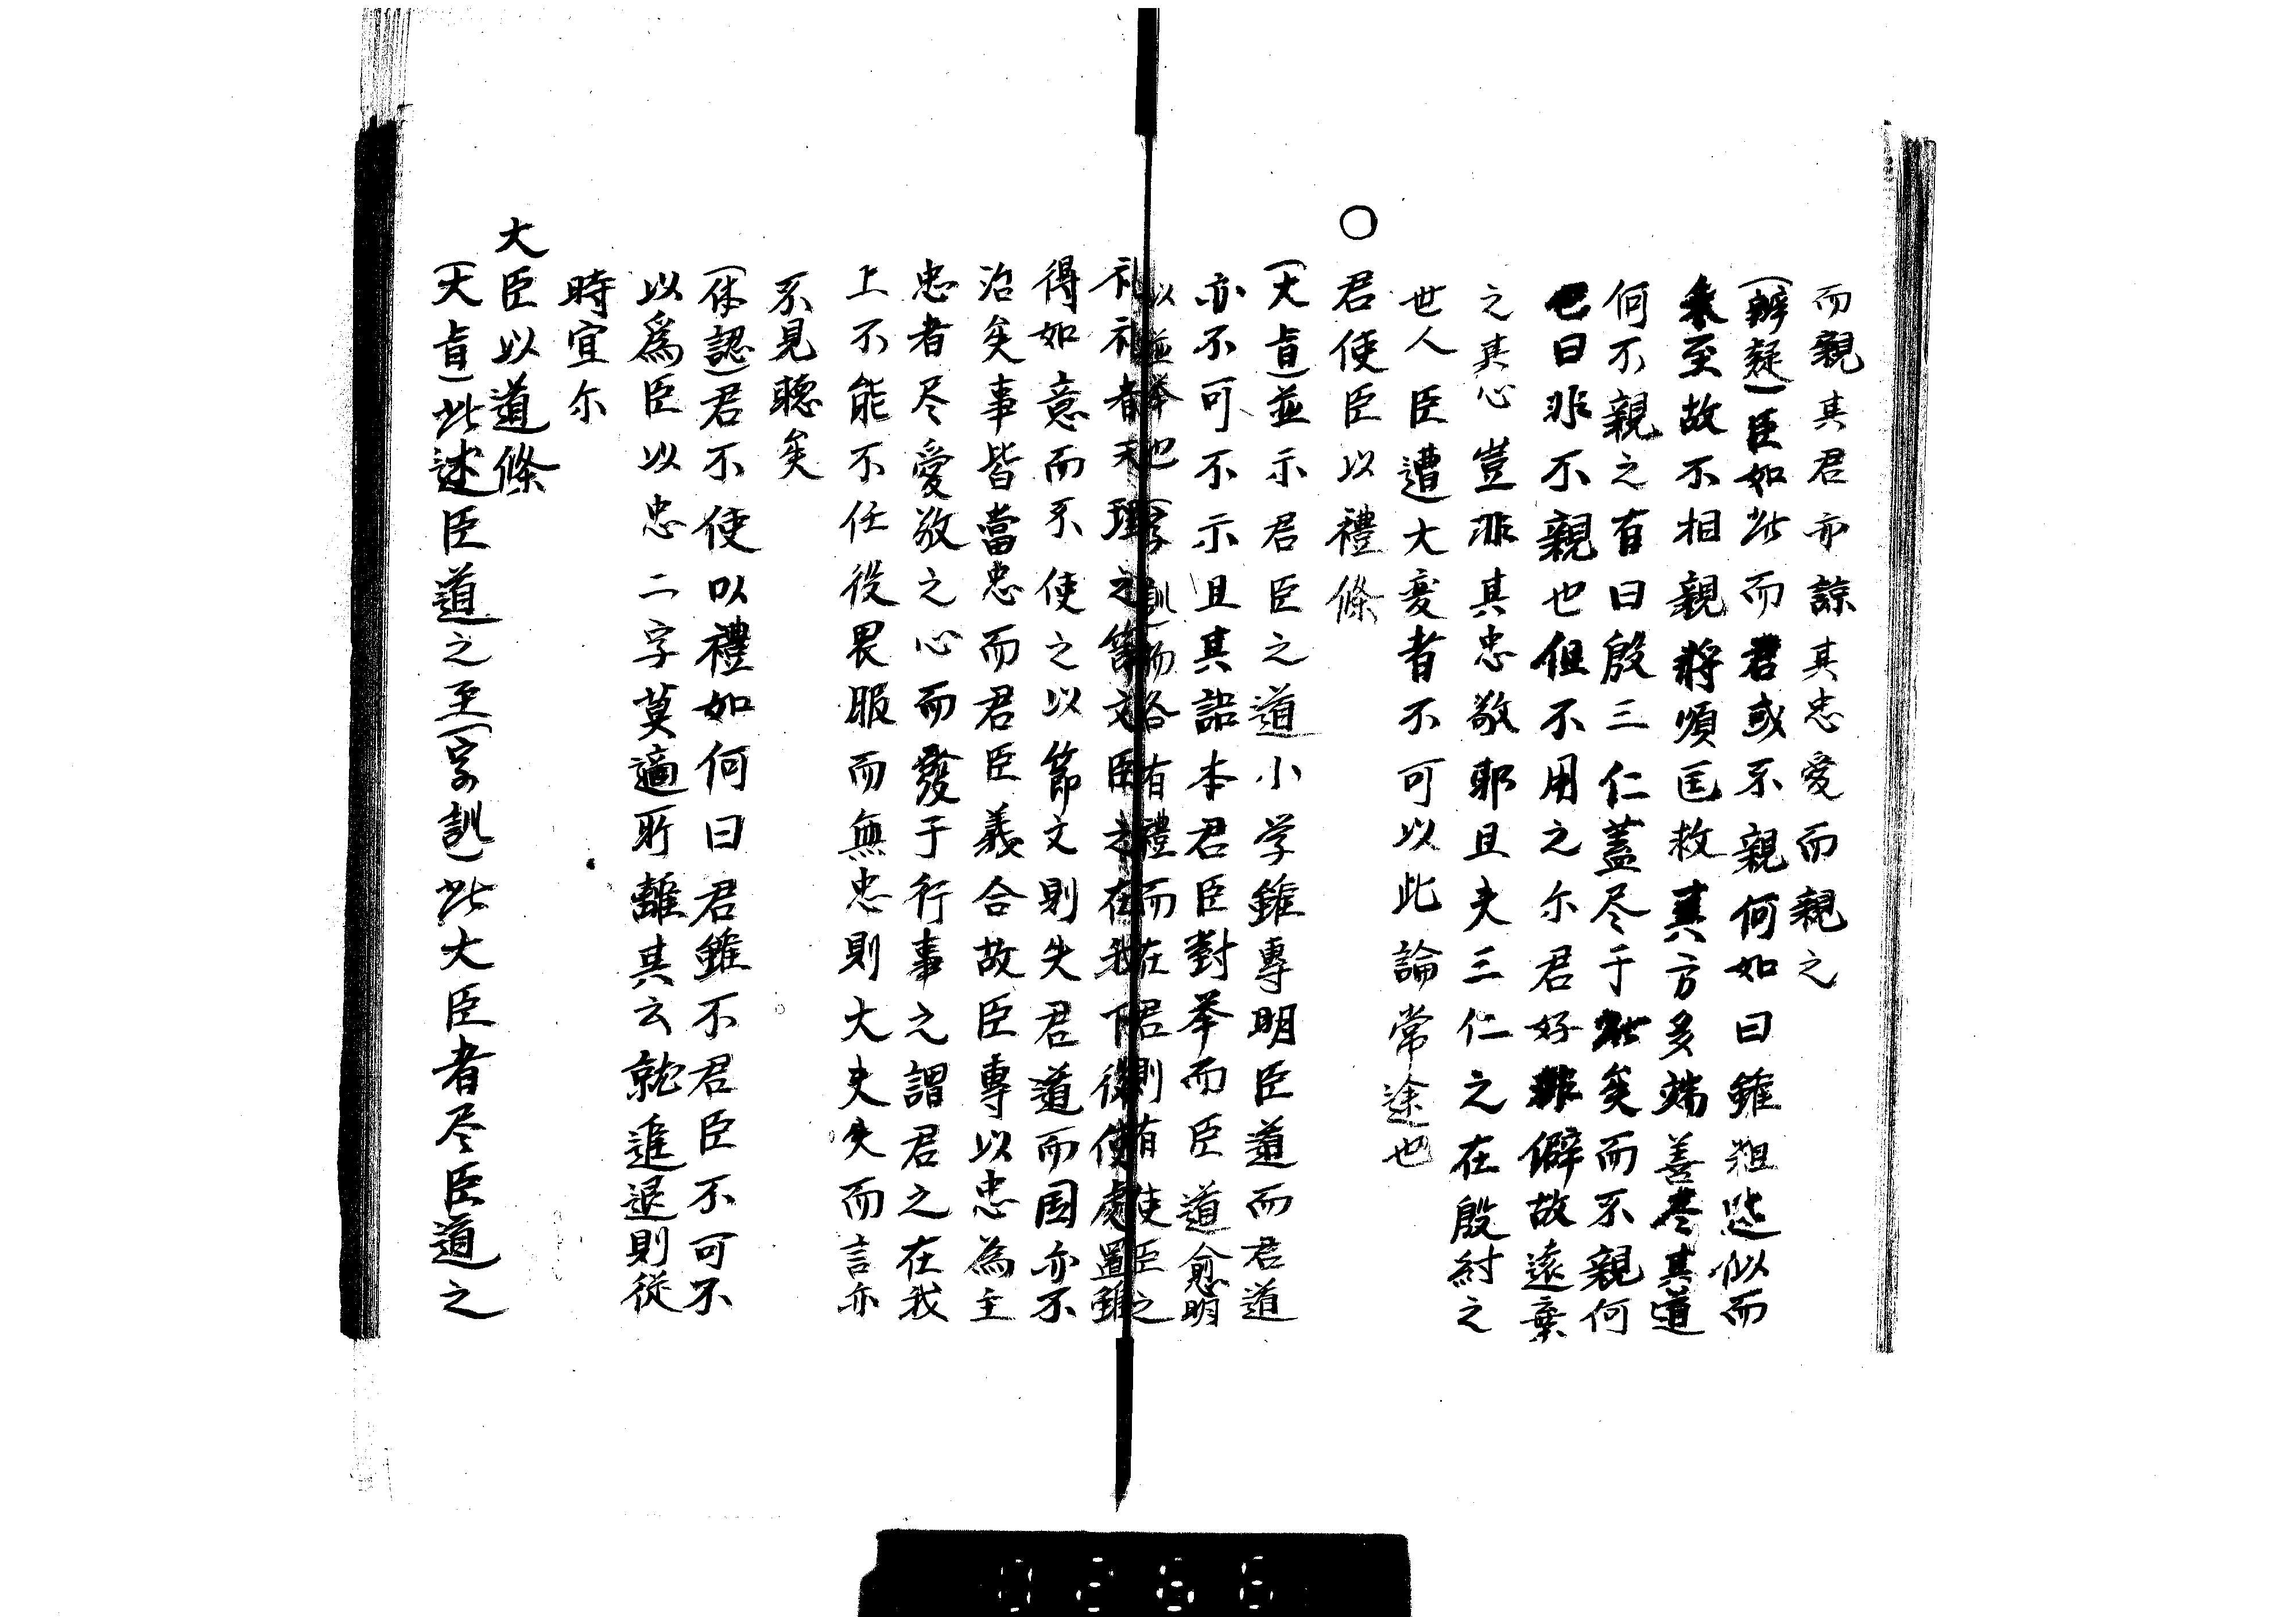 而親其君亦諒其忠愛而親之
(辨疑)臣如此而君或不親何如曰雖粗迹似而
未至故不相親親將順匡救其方多端善尽其道
何不親之有曰殷三仁蓋尽于此矣而不親何
也曰非不親也但不用之尓君好非僻故遠棄
之其心豈非其忠敬耶且夫三仁之在殷紂之
世人臣遭大变者不可以此論常途也
○君使臣以禮條
(大旨)並示君臣之道小学雖專明臣道而君道
亦不可不示且其語本君臣對举而臣道愈明
以並举也(字訓)物各有禮而在君則有使臣之
礼礼者天理之節文臣之在我下役使處置雖
得如意而不使之以節文則失君道而国亦不
治矣事皆當忠而君臣義合故臣專以忠為主
忠者尽愛敬之心而發于行事之謂君之在我
上不能不任役畏服而無忠則大夫失而言亦
不見聽矣
(体認)君不使以禮如何曰君雖不君臣不可不
以爲臣以忠二字莫適所離其去就進退則從
時宜尓
大臣以道條
(大旨)此述臣道之至(字訓)此大臣者尽臣道之